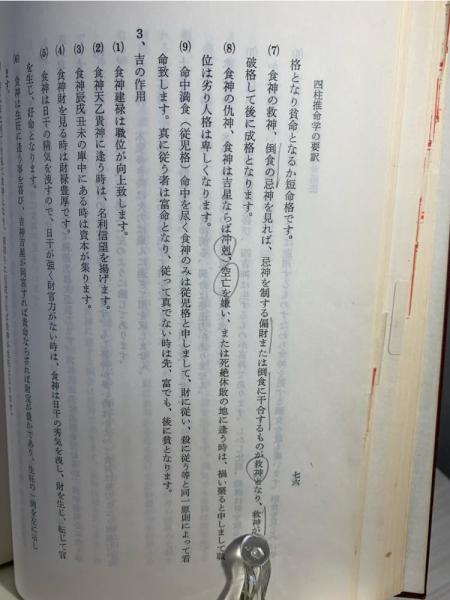 四柱推命学の要訳
七六
格となり貧命となるか短命格です。
(7) 食神の救神、倒食の忌神を見れば、忌神を制する偏財または倒食に干合するものが救神となり、救神が
破格して後に成格となります。
(8) 食神の仇神、食神は吉星ならば冲剋、空亡を嫌い、または死絶休敗の地に逢う時は、禍い聚ると申しまして
位は劣り人格は卑しくなります。
(9) 命中満食(従児格)命中を尽く食神のみは従児格と申しまして、財に従い、殺に従う等と同一原則によって
命致します。真に従う者は富命となり、従って真でない時は先、富でも、後に貧となります。
3、吉の作用
(1) 食神建禄は職位が向上致します。
(2) 食神天乙貴神に逢う時は、名利信望を揚げます。
(3) 食神辰戌丑未の庫中にある時は資本が集ります。
(4) 食神財を見る時は財禄豊厚です。
(5) 食神は日干の精気を洩すので、日干が強く財官力がない時は、食神は日干の秀気を洩し、財を生じ、転じて官
を生じ、好命となります。
(6) 食神は生旺に逢う事を喜び、吉神吉星が同宮すれば貴命ならずれば財定が豊かであり、
ます。